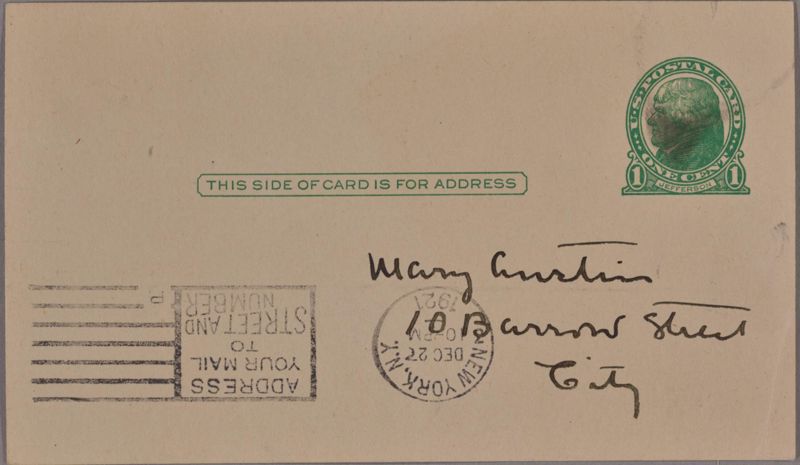 U.S. POSTAL CARD
ONE CENT
1 JEFFERSON 1
THIS SIDE OF CARD IS FOR ADDRESS
Mary Austin
10 Barrow Street
City
NEW YORK, N.Y.
DEC 27
10-PM
1921
ADDRESS
YOUR MAIL
TO
STREET AND
NUMBER